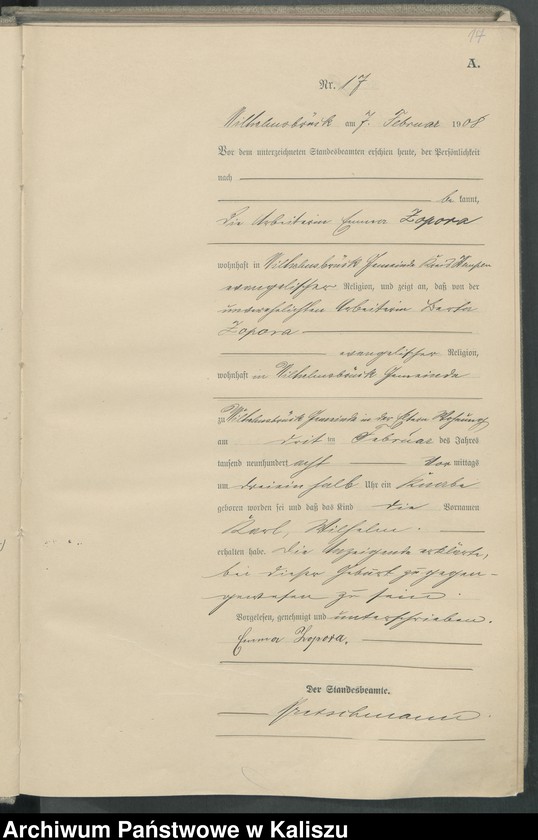 14
A.
Nr. 17
Wilhelmsbrück am 7. Februar 1908
Vor dem unterzeichneten Standesbeamten erschien heute, der Persönlichkeit
nach
be kannt,
die Arbeiterin Emma Zopora
wohnhaft in Wilhelmsbrück Gemeinde Kreis Kempen
evangelischer Religion, und zeigt an, daß von der
unverehelichten Arbeiterin Berta
Zopora
evangelischer Religion,
wohnhaft in Wilhelmsbrück Gemeinde
zu Wilhelmsbrück Gemeinde in der Wohnung
am drit ten Februar des Jahres
tausend neunhundert acht Vor mittags
um dreiein halb Uhr ein Knabe
geboren worden sei und daß das Kind die Vornamen
Karl, Wilhelm.
erhalten habe. Die Anzeigende erklärte,
bei dieser Geburt zugegen-
gewesen zu sein.
Vorgelesen, genehmigt und unterschrieben.
Emma Zopora.
Der Standesbeamte.
Kretschmann
Archiwum Państwowe w Kaliszu